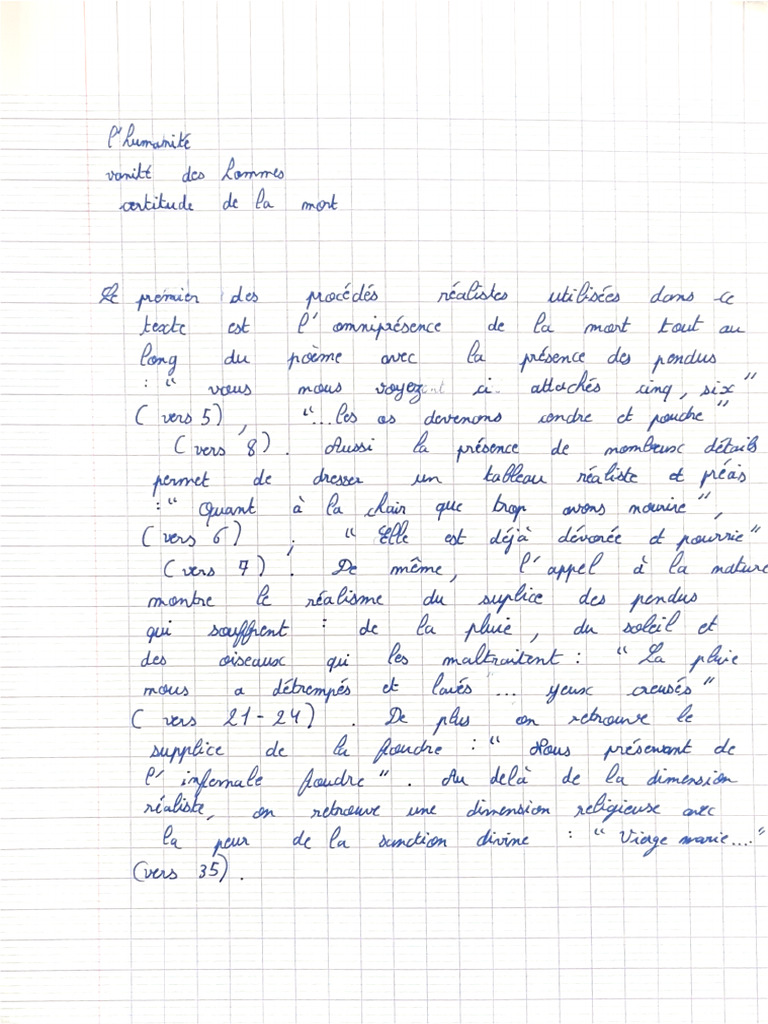 l'humanité
vanité des hommes
certitude de la mort
Le premier des procédés réalistes utilisées dans ce
texte est l'omniprésence de la mort tout au
long du poème avec la présence des pendus
: " vous nous voyez ci attachés cinq, six "
( vers 5) , "...les os devenons cendre et poudre"
( vers 8) . Aussi la présence de nombeux détails
permet de dresser un tableau réaliste et précis
: " Quant à la chair que trop avons nourrie ",
( vers 6) ; " Elle est déjà dévorée et pourrie"
( vers 7) . De même, l'appel à la nature
montre le réalisme du suplice des pendus
qui souffrent : de la pluie, du soleil et
des oiseaux qui les maltraitent : " La pluie
nous a détrempés et lavés ... yeux creusés "
( vers 21-24) . De plus on retrouve le
supplice de la foudre : " Nous préservant de
l'infernale foudre ". Au delà de la dimension
réaliste, on retrouve une dimension religieuse avec
la peur de la sanction divine : " Vierge marie...."
(vers 35) .